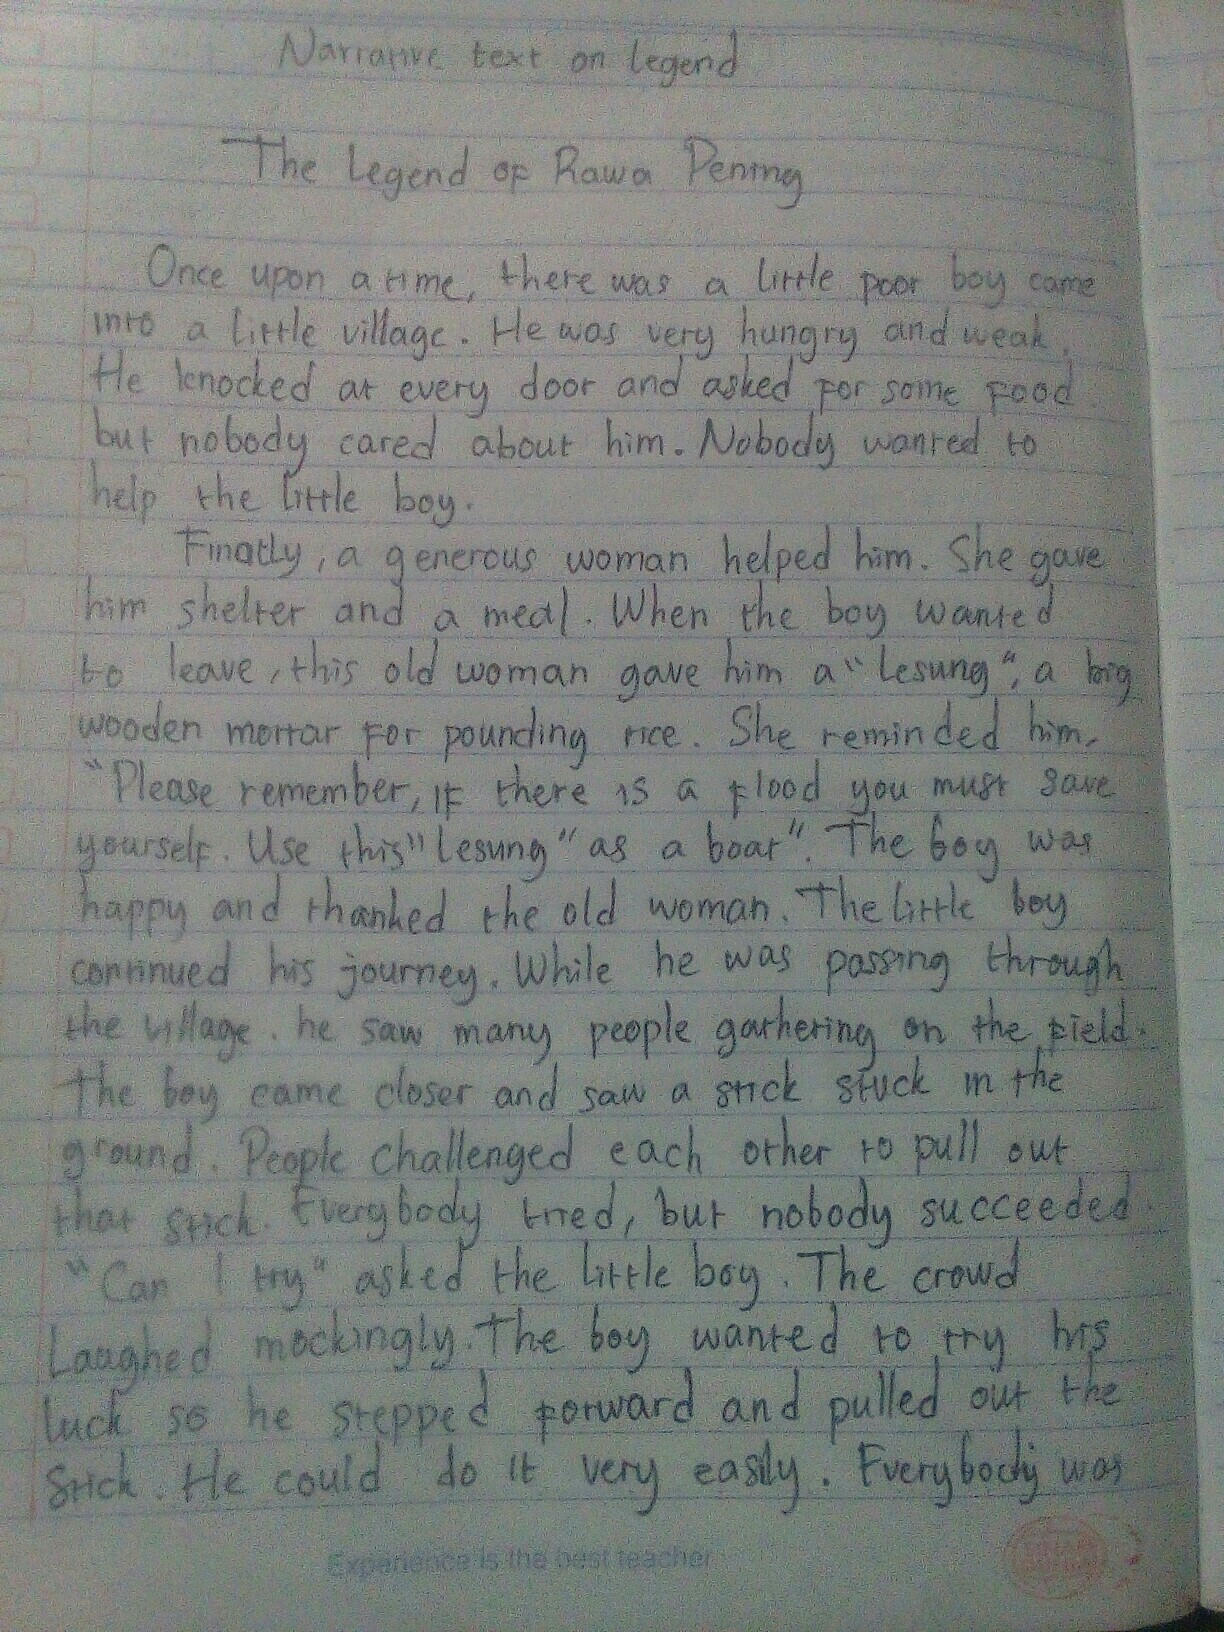 Narrative text on legend
The Legend of Rawa Pening
Once upon a time, there was a little poor boy came
into a little village. He was very hungry and weak.
He knocked at every door and asked for some food.
but nobody cared about him. Nobody wanted to
help the little boy.
Finatly, a generous woman helped him. She gave
him shelter and a meal. When the boy wanted
to leave, this old woman gave him a "Lesung", a big
wooden mortar for pounding rice. She reminded him,
"Please remember, if there is a flood you must save
yourself. Use this "Lesung" as a boat". The boy was
happy and thanked the old woman. The little boy
continued his journey. While he was passing through
the village. he saw many people gathering on the field.
The boy came closer and saw a stick stuck in the
ground. People challenged each other to pull out
that stick. Everybody tried, but nobody succeeded.
"Can I try" asked the little boy. The crowd
Laughed mockingly. The boy wanted to try his
luck so he stepped forward and pulled out the
stick. He could do it very easily. Everybody was
Experience is the best teacher